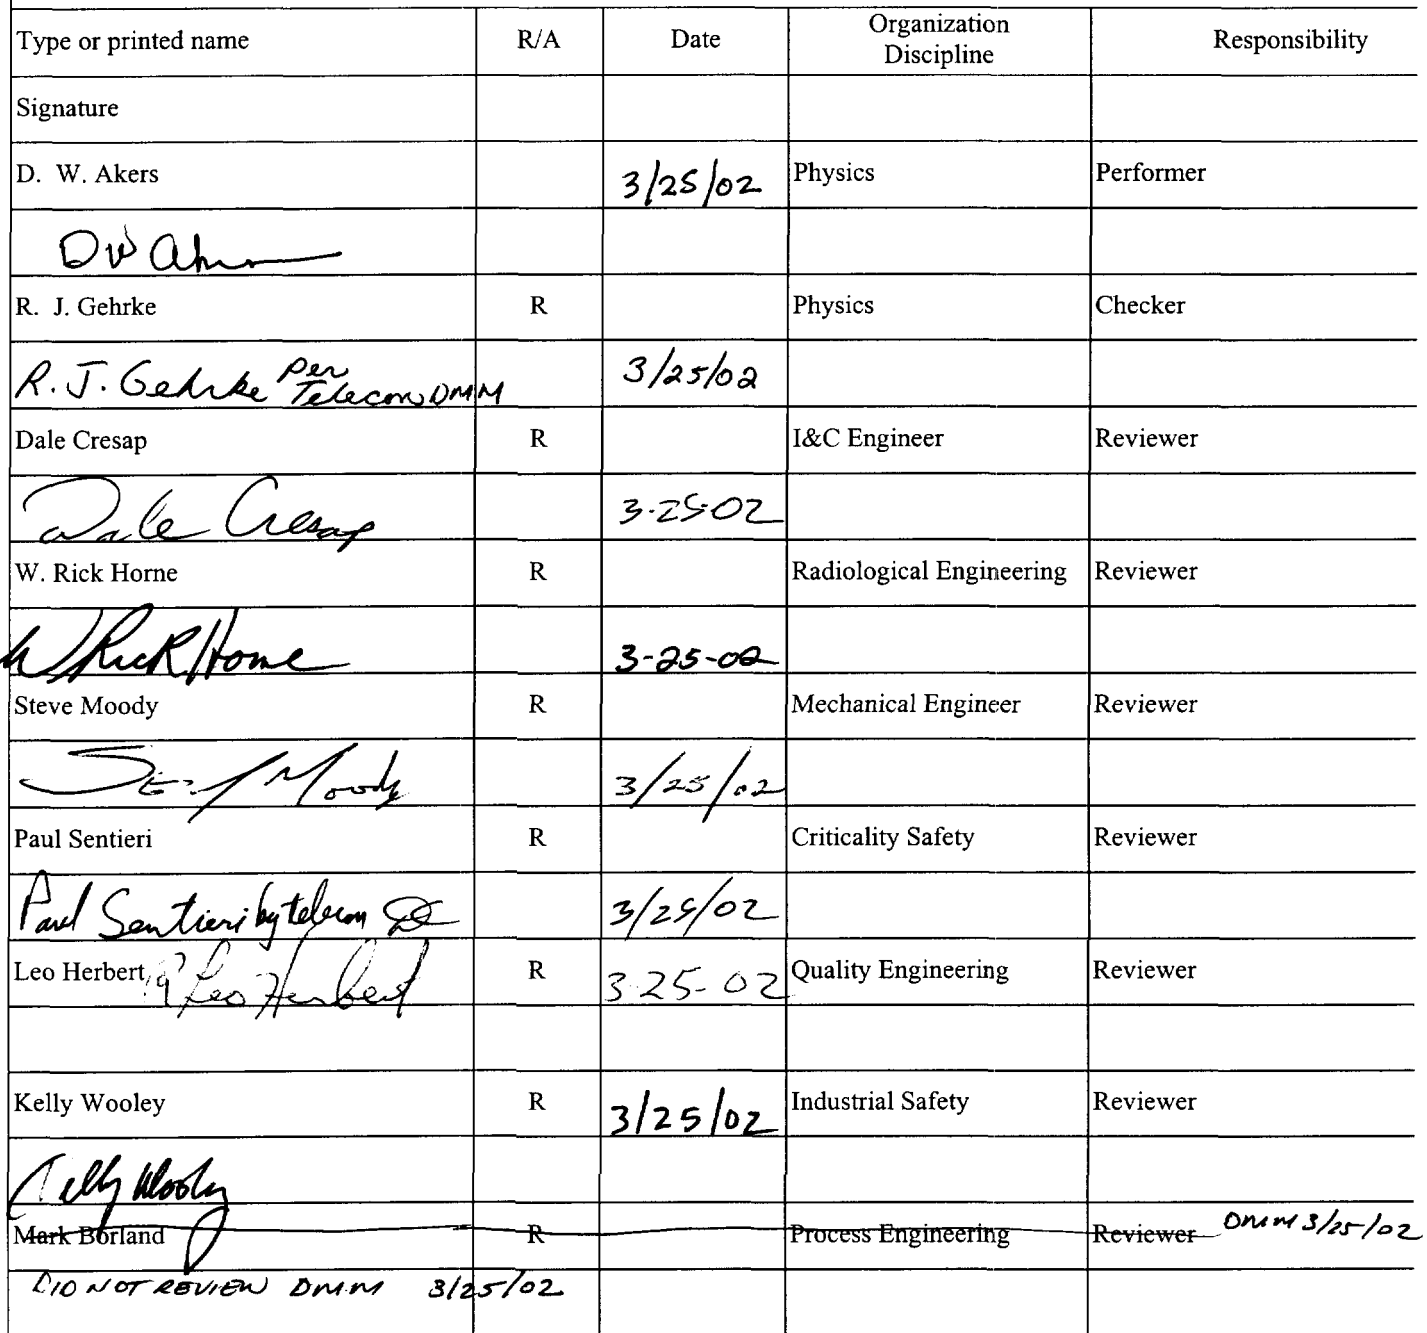 Type or printed name R/A Date Organization Discipline Responsibility
Signature
D. W. Akers 3/25/02 Physics Performer
DW Akers
R. J. Gehrke R Physics Checker
R. J. Gehrke per Telecon DMM 3/25/02
Dale Cresap R I&C Engineer Reviewer
Dale Cresap 3-25-02
W. Rick Horne R Radiological Engineering Reviewer
W Rick Horne 3-25-02
Steve Moody R Mechanical Engineer Reviewer
Steve Moody 3/25/02
Paul Sentieri R Criticality Safety Reviewer
Paul Sentieri by telecon DC 3/25/02
Leo Herbert Leo Herbert R 3-25-02 Quality Engineering Reviewer
Kelly Wooley R 3/25/02 Industrial Safety Reviewer
Kelly Wooley
Mark Borland R Process Engineering Reviewer DMM 3/25/02
DID NOT REVIEW DMM 3/25/02